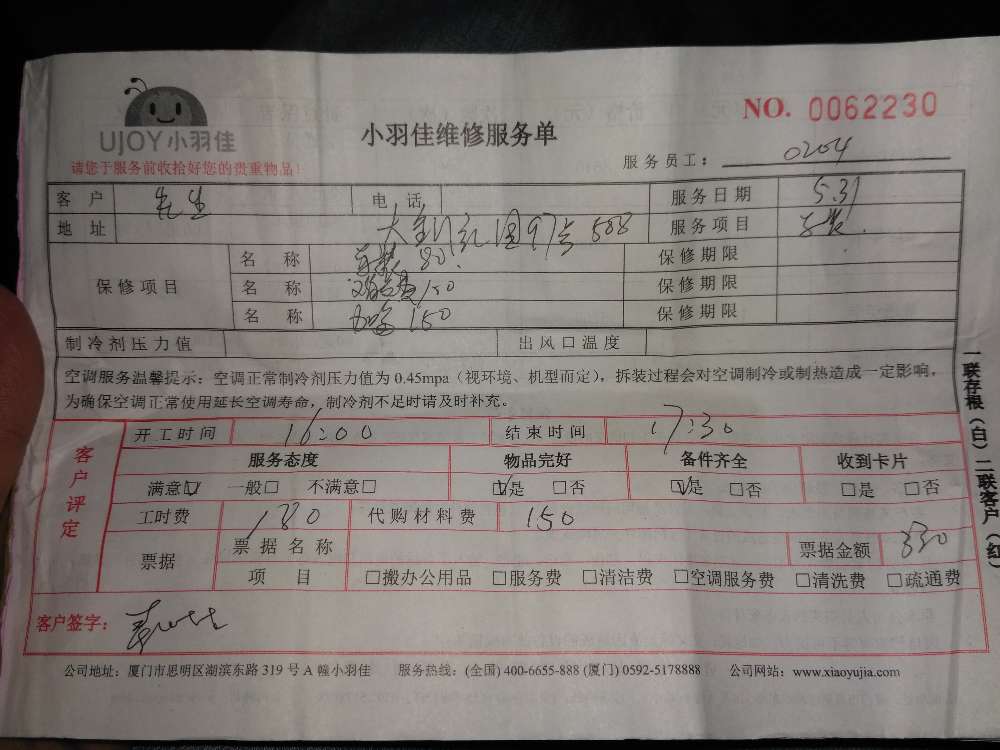 UJOY小羽佳
请您于服务前收拾好您的贵重物品!
小羽佳维修服务单
NO. 0062230
服务员工: 0204
客户 先生 电话 服务日期 5.31
地址 97号 588 服务项目
保修项目 名称 80 保修期限
名称 150 保修期限
名称 加 150 保修期限
制冷剂压力值 出风口温度
空调服务温馨提示:空调正常制冷剂压力值为 0.45mpa(视环境、机型而定),拆装过程会对空调制冷或制热造成一定影响,
为确保空调正常使用延长空调寿命,制冷剂不足时请及时补充。
客户评定
开工时间 16:00 结束时间 17:30
服务态度 物品完好 备件齐全 收到卡片
满意☑ 一般□ 不满意□ ☑是 □否 ☑是 □否 □是 □否
工时费 180 代购材料费 150
票据 票据名称 票据金额 330
项目 □搬办公用品 □服务费 □清洁费 □空调服务费 □清洗费 □疏通费
客户签字:
公司地址:厦门市思明区湖滨东路 319 号 A 幢小羽佳 服务热线:(全国) 400-6655-888 (厦门) 0592-5178888 公司网站:www.xiaoyujia.com
一联存根(白)二联客户(红)